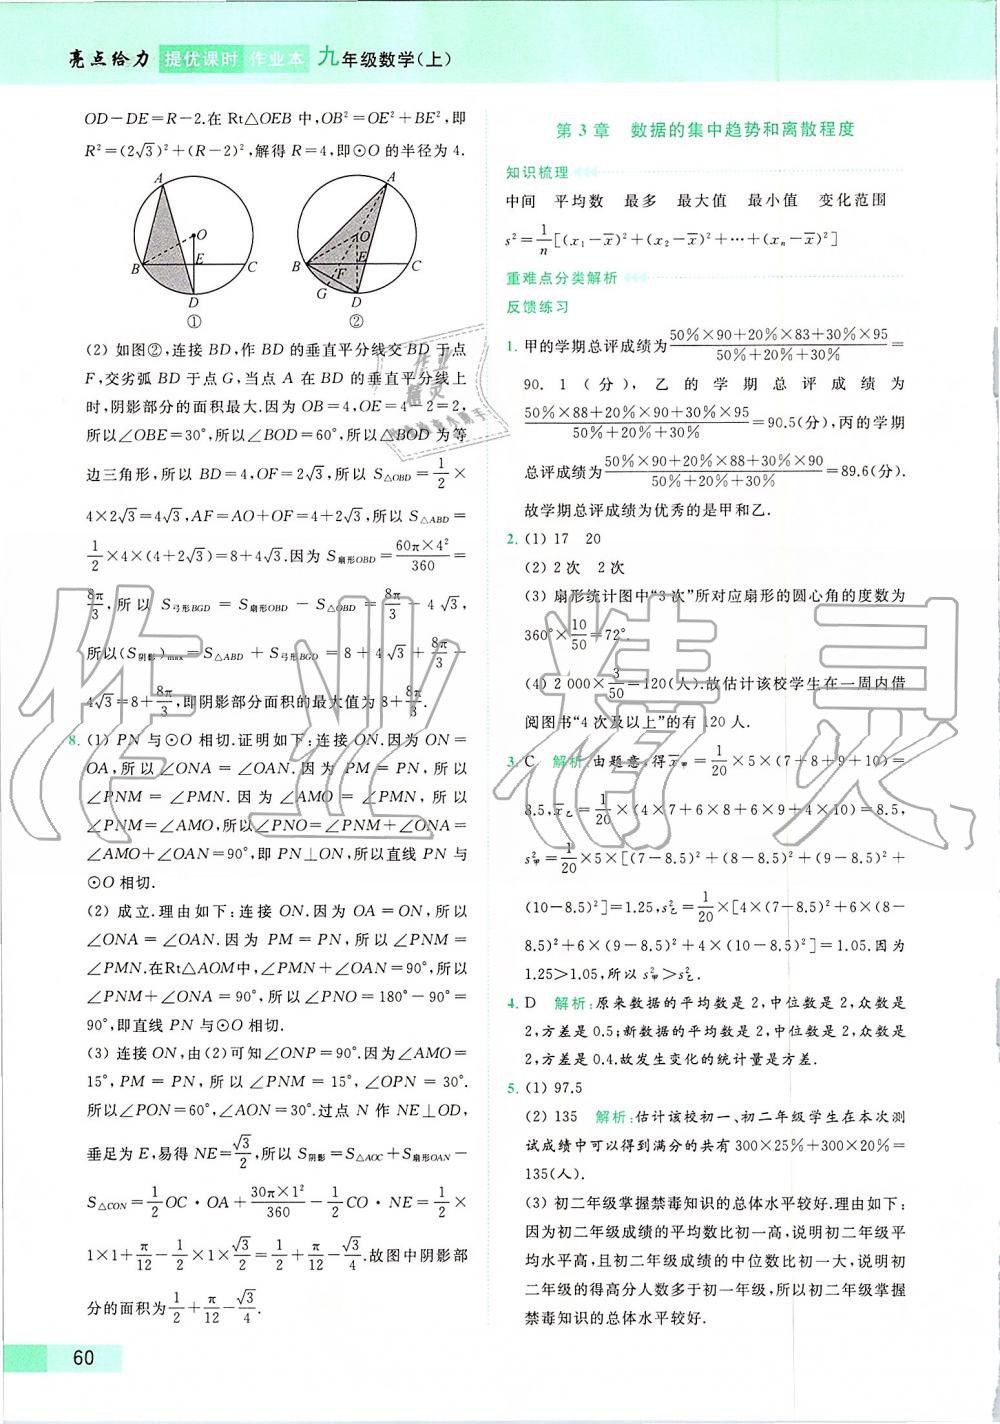 亮点给力 提优课时 作业本 九年级数学(上)
OD-DE=R-2.在 Rt△OEB 中,OB²=OE²+BE²,即
R²=(2√3)²+(R-2)²,解得 R=4,即⊙O 的半径为 4.
A
O
B
E
C
D
①
A
O
B
E
C
F
G
D
②
(2) 如图②,连接 BD,作 BD 的垂直平分线交 BD 于点
F,交劣弧 BD 于点 G,当点 A 在 BD 的垂直平分线上
时,阴影部分的面积最大.因为 OB=4,OE=4-2=2,
所以∠OBE=30°,所以∠BOD=60°,所以△BOD 为等
边三角形,所以 BD=4,OF=2√3,所以 S△OBD=1/2×
4×2√3=4√3,AF=AO+OF=4+2√3,所以 S△ABD=
1/2×4×(4+2√3)=8+4√3.因为 S扇形OBD=60π×4²/360=
8π/3,所以 S弓形BGD=S扇形OBD-S△OBD=8π/3-4√3,
所以(S阴影)max=S△ABD+S弓形BGD=8+4√3+8π/3-
4√3=8+8π/3,即阴影部分面积的最大值为 8+8π/3.
8. (1) PN 与⊙O 相切.证明如下:连接 ON.因为 ON=
OA,所以∠ONA=∠OAN.因为 PM=PN,所以
∠PNM=∠PMN.因为∠AMO=∠PMN,所以
∠PNM=∠AMO,所以∠PNO=∠PNM+∠ONA=
∠AMO+∠OAN=90°,即 PN⊥ON,所以直线 PN 与
⊙O 相切.
(2) 成立.理由如下:连接 ON.因为 OA=ON,所以
∠ONA=∠OAN.因为 PM=PN,所以∠PNM=
∠PMN.在Rt△AOM中,∠PMN+∠OAN=90°,所以
∠PNM+∠ONA=90°,所以∠PNO=180°-90°=
90°,即直线 PN 与⊙O 相切.
(3) 连接 ON,由(2)可知∠ONP=90°.因为∠AMO=
15°,PM=PN,所以∠PNM=15°,∠OPN=30°.
所以∠PON=60°,∠AON=30°.过点 N 作 NE⊥OD,
垂足为 E,易得 NE=√3/2,所以 S阴影=S△AOC+S扇形OAN-
S△CON=1/2OC·OA+30π×1²/360-1/2CO·NE=1/2×
1×1+π/12-1/2×1×√3/2=1/2+π/12-√3/4.故图中阴影部
分的面积为1/2+π/12-√3/4.
60
第 3 章 数据的集中趋势和离散程度
知识梳理
中间 平均数 最多 最大值 最小值 变化范围
s²=1/n[(x₁-x̄)²+(x₂-x̄)²+…+(xₙ-x̄)²]
重难点分类解析
反馈练习
1. 甲的学期总评成绩为50%×90+20%×83+30%×95/50%+20%+30%=
90.1(分),乙的学期总评成绩为
50%×88+20%×90+30%×95/50%+20%+30%=90.5(分),丙的学期
总评成绩为50%×90+20%×88+30%×90/50%+20%+30%=89.6(分).
故学期总评成绩为优秀的是甲和乙.
2. (1) 17 20
(2) 2 次 2 次
(3) 扇形统计图中“3 次”所对应扇形的圆心角的度数为
360°×10/50=72°.
(4) 2 000×3/50=120(人).故估计该校学生在一周内借
阅图书“4 次及以上”的有 120 人.
3. C 解析:由题意,得x̄甲=1/20×5×(7+8+9+10)=
8.5,x̄乙=1/20×(4×7+6×8+6×9+4×10)=8.5,
s²甲=1/20×5×[(7-8.5)²+(8-8.5)²+(9-8.5)²+
(10-8.5)²]=1.25,s²乙=1/20×[4×(7-8.5)²+6×(8-
8.5)²+6×(9-8.5)²+4×(10-8.5)²]=1.05.因为
1.25>1.05,所以 s²甲>s²乙.
4. D 解析:原来数据的平均数是 2,中位数是 2,众数是
2,方差是 0.5;新数据的平均数是 2,中位数是 2,众数是
2,方差是 0.4.故发生变化的统计量是方差.
5. (1) 97.5
(2) 135 解析:估计该校初一、初二年级学生在本次测
试成绩中可以得到满分的共有 300×25%+300×20%=
135(人).
(3) 初二年级掌握禁毒知识的总体水平较好.理由如下:
因为初二年级成绩的平均数比初一高,说明初二年级平
均水平高,且初二年级成绩的中位数比初一大,说明初
二年级的得高分人数多于初一年级,所以初二年级掌握
禁毒知识的总体水平较好.
作业精灵